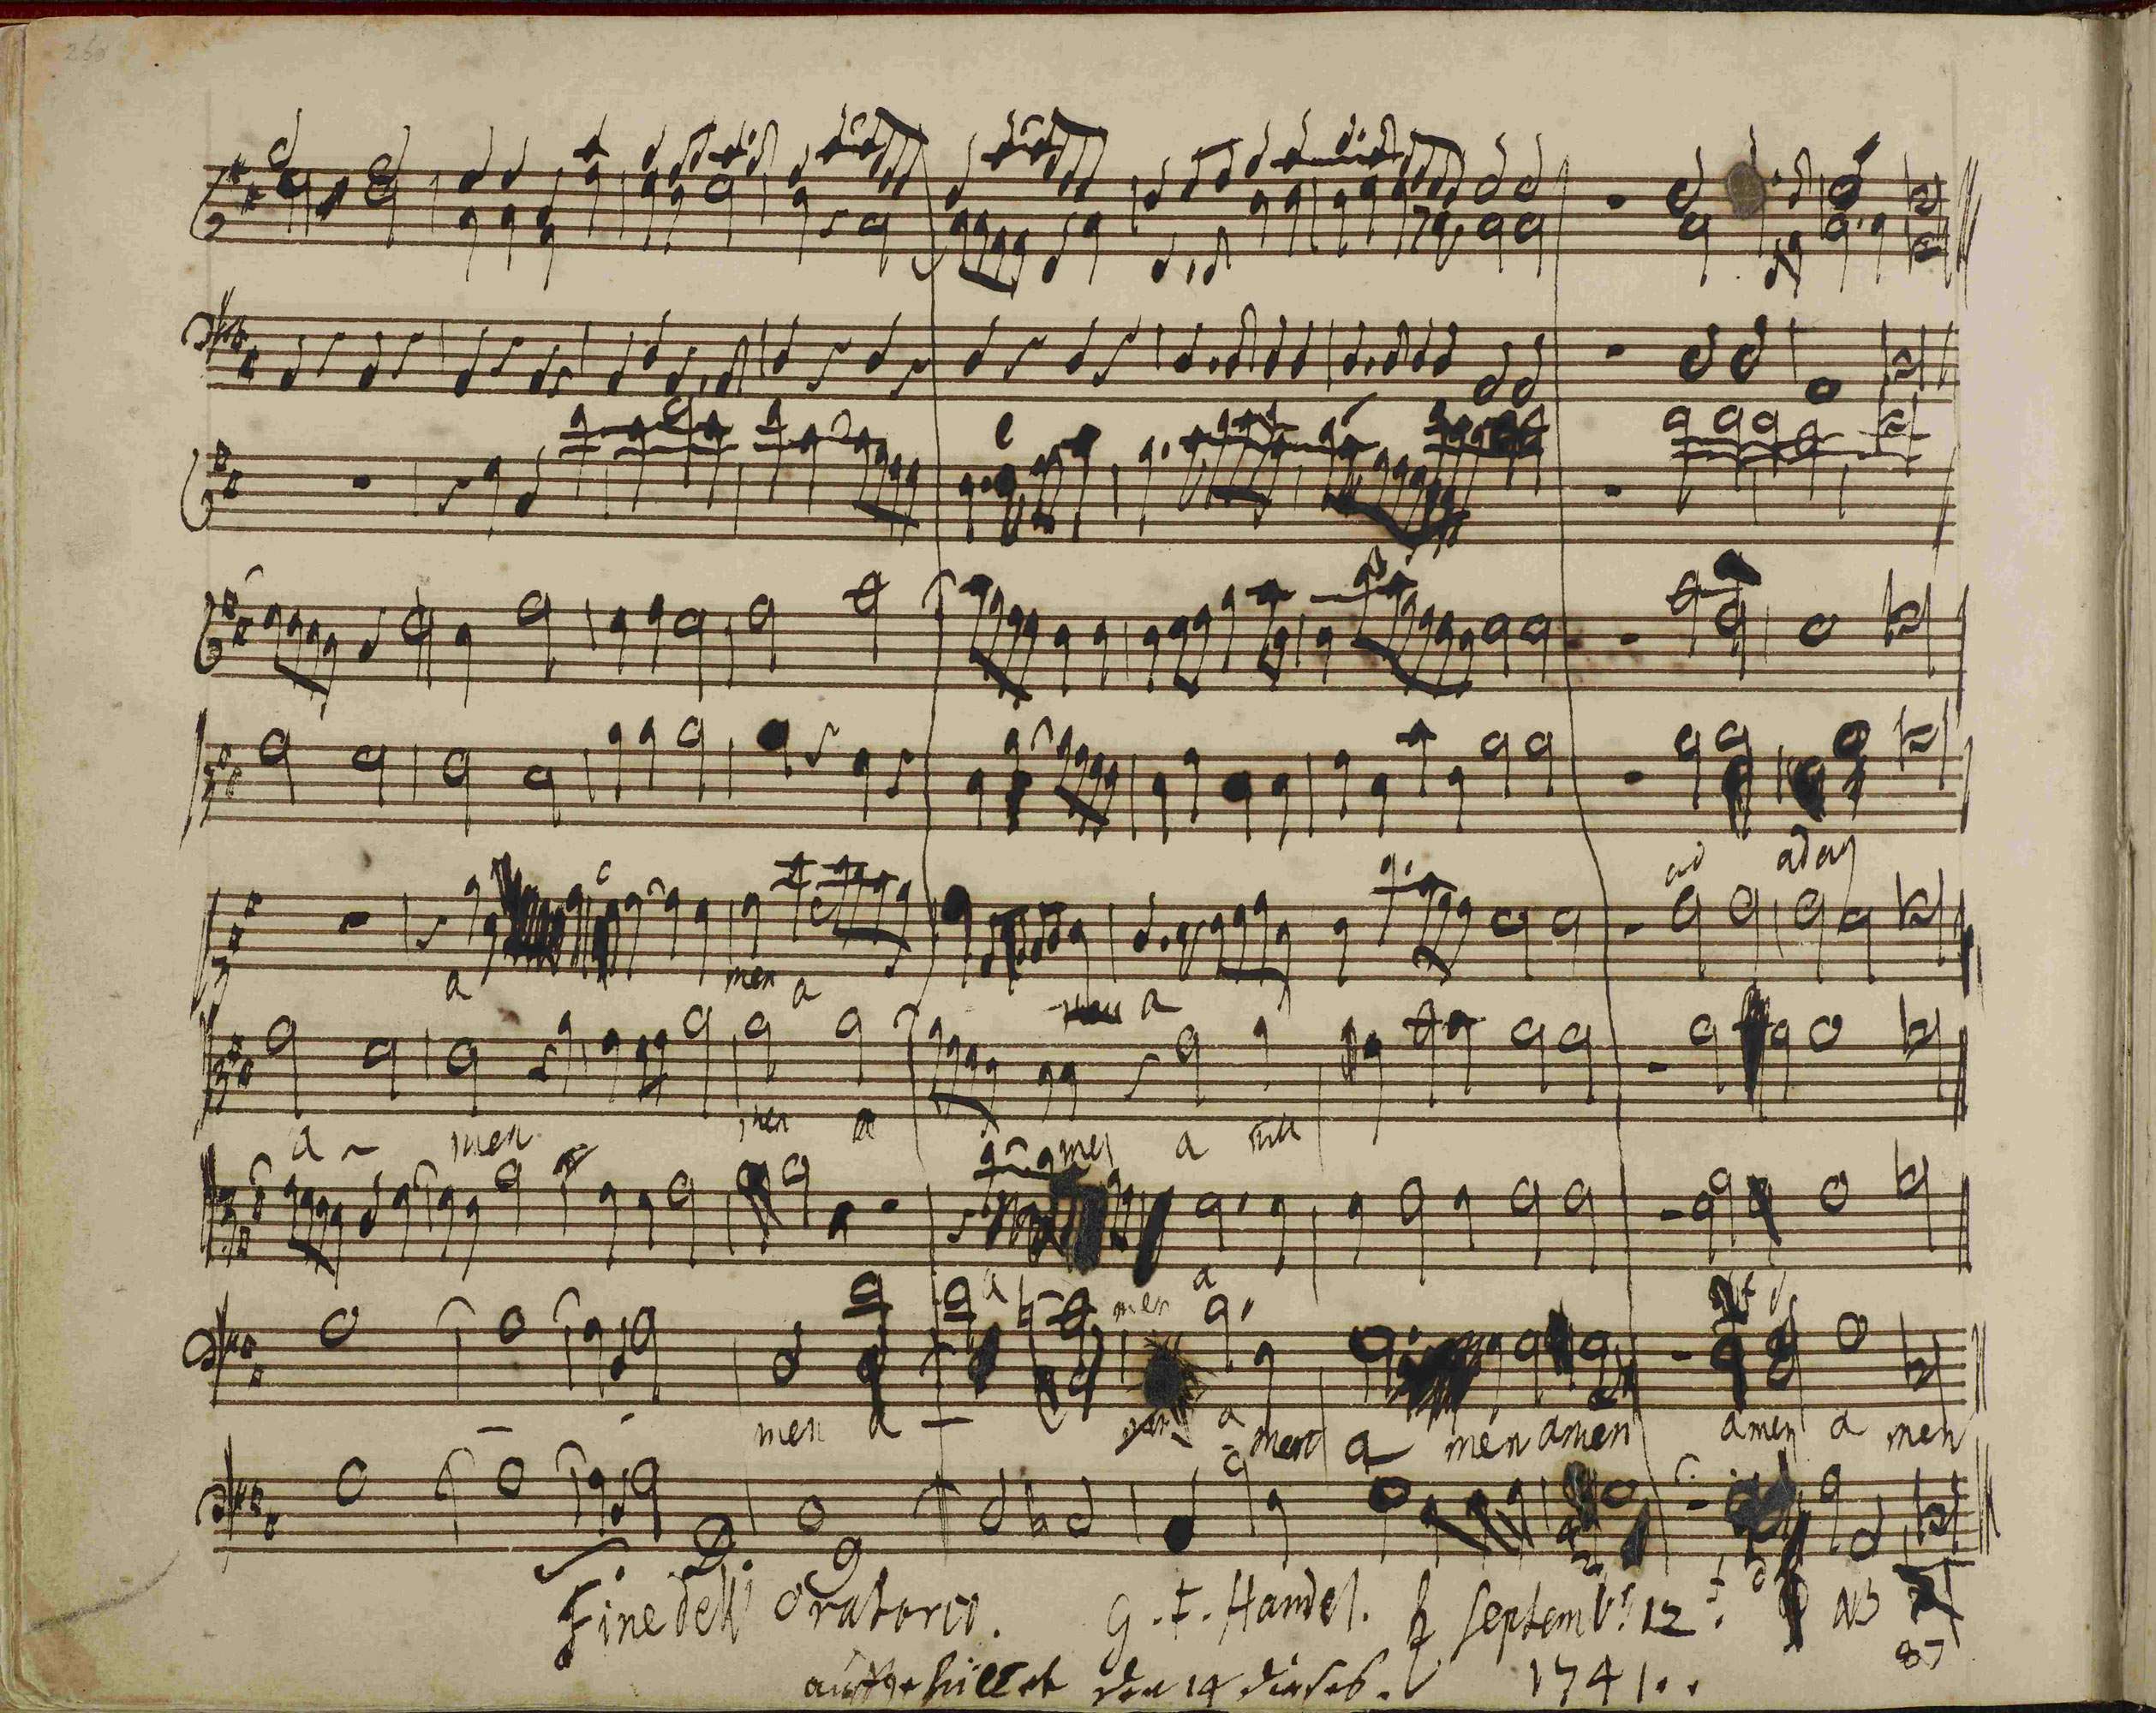 260
ad adag
a men a
men a
a - men men a men a men
a men a
men a - a men a men amen amen a men
Fine dell' Oratorio. G. F. Handel. ♄ Septembr. 12
ausgefüllet den 14 dieses. 1741..
87